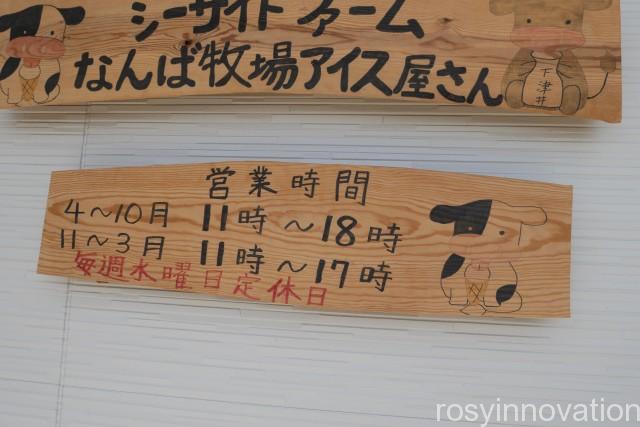 シーサイドファーム
なんば牧場アイス屋さん
下津井
営業時間
4～10月 11時～18時
11～3月 11時～17時
毎週水曜日定休日
rosyinnovation